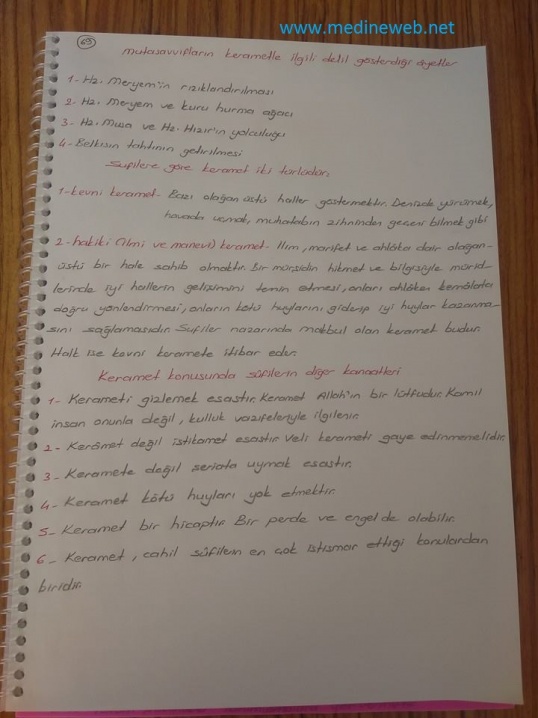 www.medineweb.net
63
mutasavvıfların kerametle ilgili delil gösterdiği ayetler
1- Hz. Meryem'in rızıklandırılması
2- Hz. Meryem ve kuru hurma ağacı
3- Hz. Musa ve Hz. Hızır'ın yolculuğu
4- Belkısın tahtının getirilmesi
Sufilere göre keramet iki türlüdür.
1- kevni keramet- Bazı olağan üstü haller göstermektir. Denizde yürümek,
havada uçmak, muhatabın zihninden geçeni bilmek gibi
2- hakiki (ilmi ve manevi) keramet- Ilım, marifet ve ahlâka dair olağan-
üstü bir hale sahib olmaktır. Bir mürşidin hikmet ve bilgisiyle mürid-
lerinde iyi hallerin gelişimini temin etmesi, onları ahlâkei kemâlata
doğru yönlendirmesi, onların kötü huylarını giderip iyi huylar kazanma-
sını sağlamasıdır. Sufiler nazarında makbul olan keramet budur.
Halk ise kevni keramete itibar eder.
Keramet konusunda sûfilerin diğer kanaatleri
1- Kerameti gizlemek esastır. Keramet Allah'ın bir lütfudur. Kamil
insan onunla değil, kulluk vazifeleriyle ilgilenir.
2- Kerâmet değil istikamet esastır Veli kerameti gaye edinmemelidir.
3- Keramete değil şeriata uymak esastır.
4- Keramet kötü huyları yok etmektir.
5- Keramet bir hicaptır. Bir perde ve engel de olabilir.
6- Keramet, cahil sûfilerin en çok istismar ettiği konulardan
biridir.